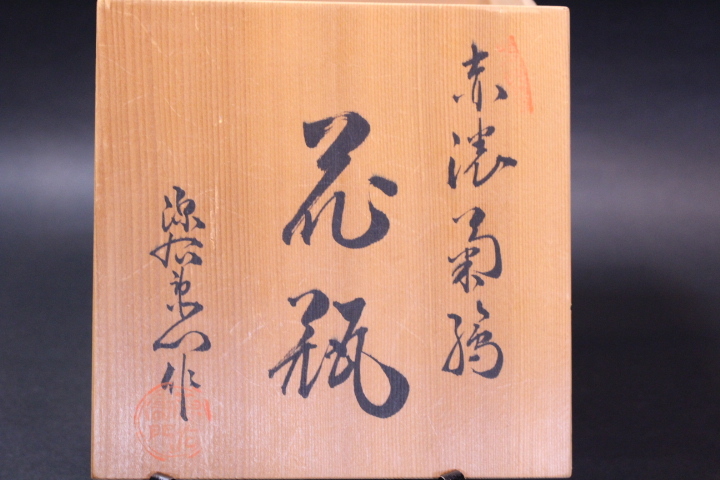 赤濃菊絵
花瓶
源右衛門作